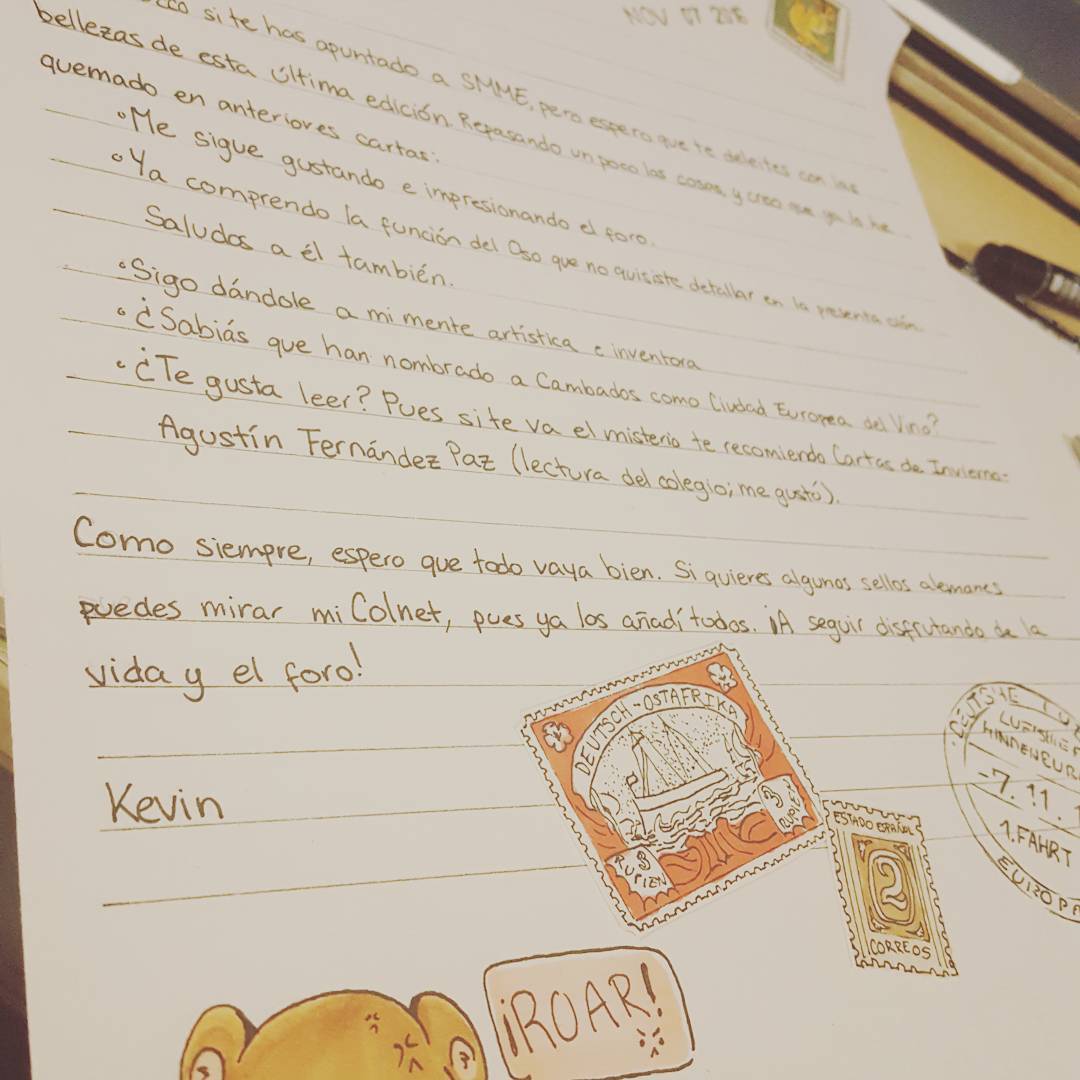 NOV 07 2016
si te has apuntado a SMME, pero espero que te deleites con las
bellezas de esta última edición. Repasando un poco las cosas, y creo que ya lo he
quemado en anteriores cartas:
•Me sigue gustando e impresionando el foro.
•Ya comprendo la función del Oso que no quisiste detallar en la presentación.
Saludos a él también.
•Sigo dándole a mi mente artística e inventora
•¿Sabiás que han nombrado a Cambados como Ciudad Europea del Vino?
•¿Te gusta leer? Pues si te va el misterio te recomiendo Cartas de Invierno-
Agustín Fernández Paz (lectura del colegio; me gustó).
Como siempre, espero que todo vaya bien. Si quieres algunos sellos alemanes
puedes mirar mi Colnet, pues ya los añadí todos. ¡A seguir disfrutando de la
vida y el foro!
Kevin
DEUTSCH-OSTAFRIKA
3
RUPIEN
3
ESTADO ESPAÑOL
2
CORREOS
DEUTSCHE
LUFTSCHIFF
HINDENBUR
-7.11.
1.FAHRT
EUROPA
¡ROAR!